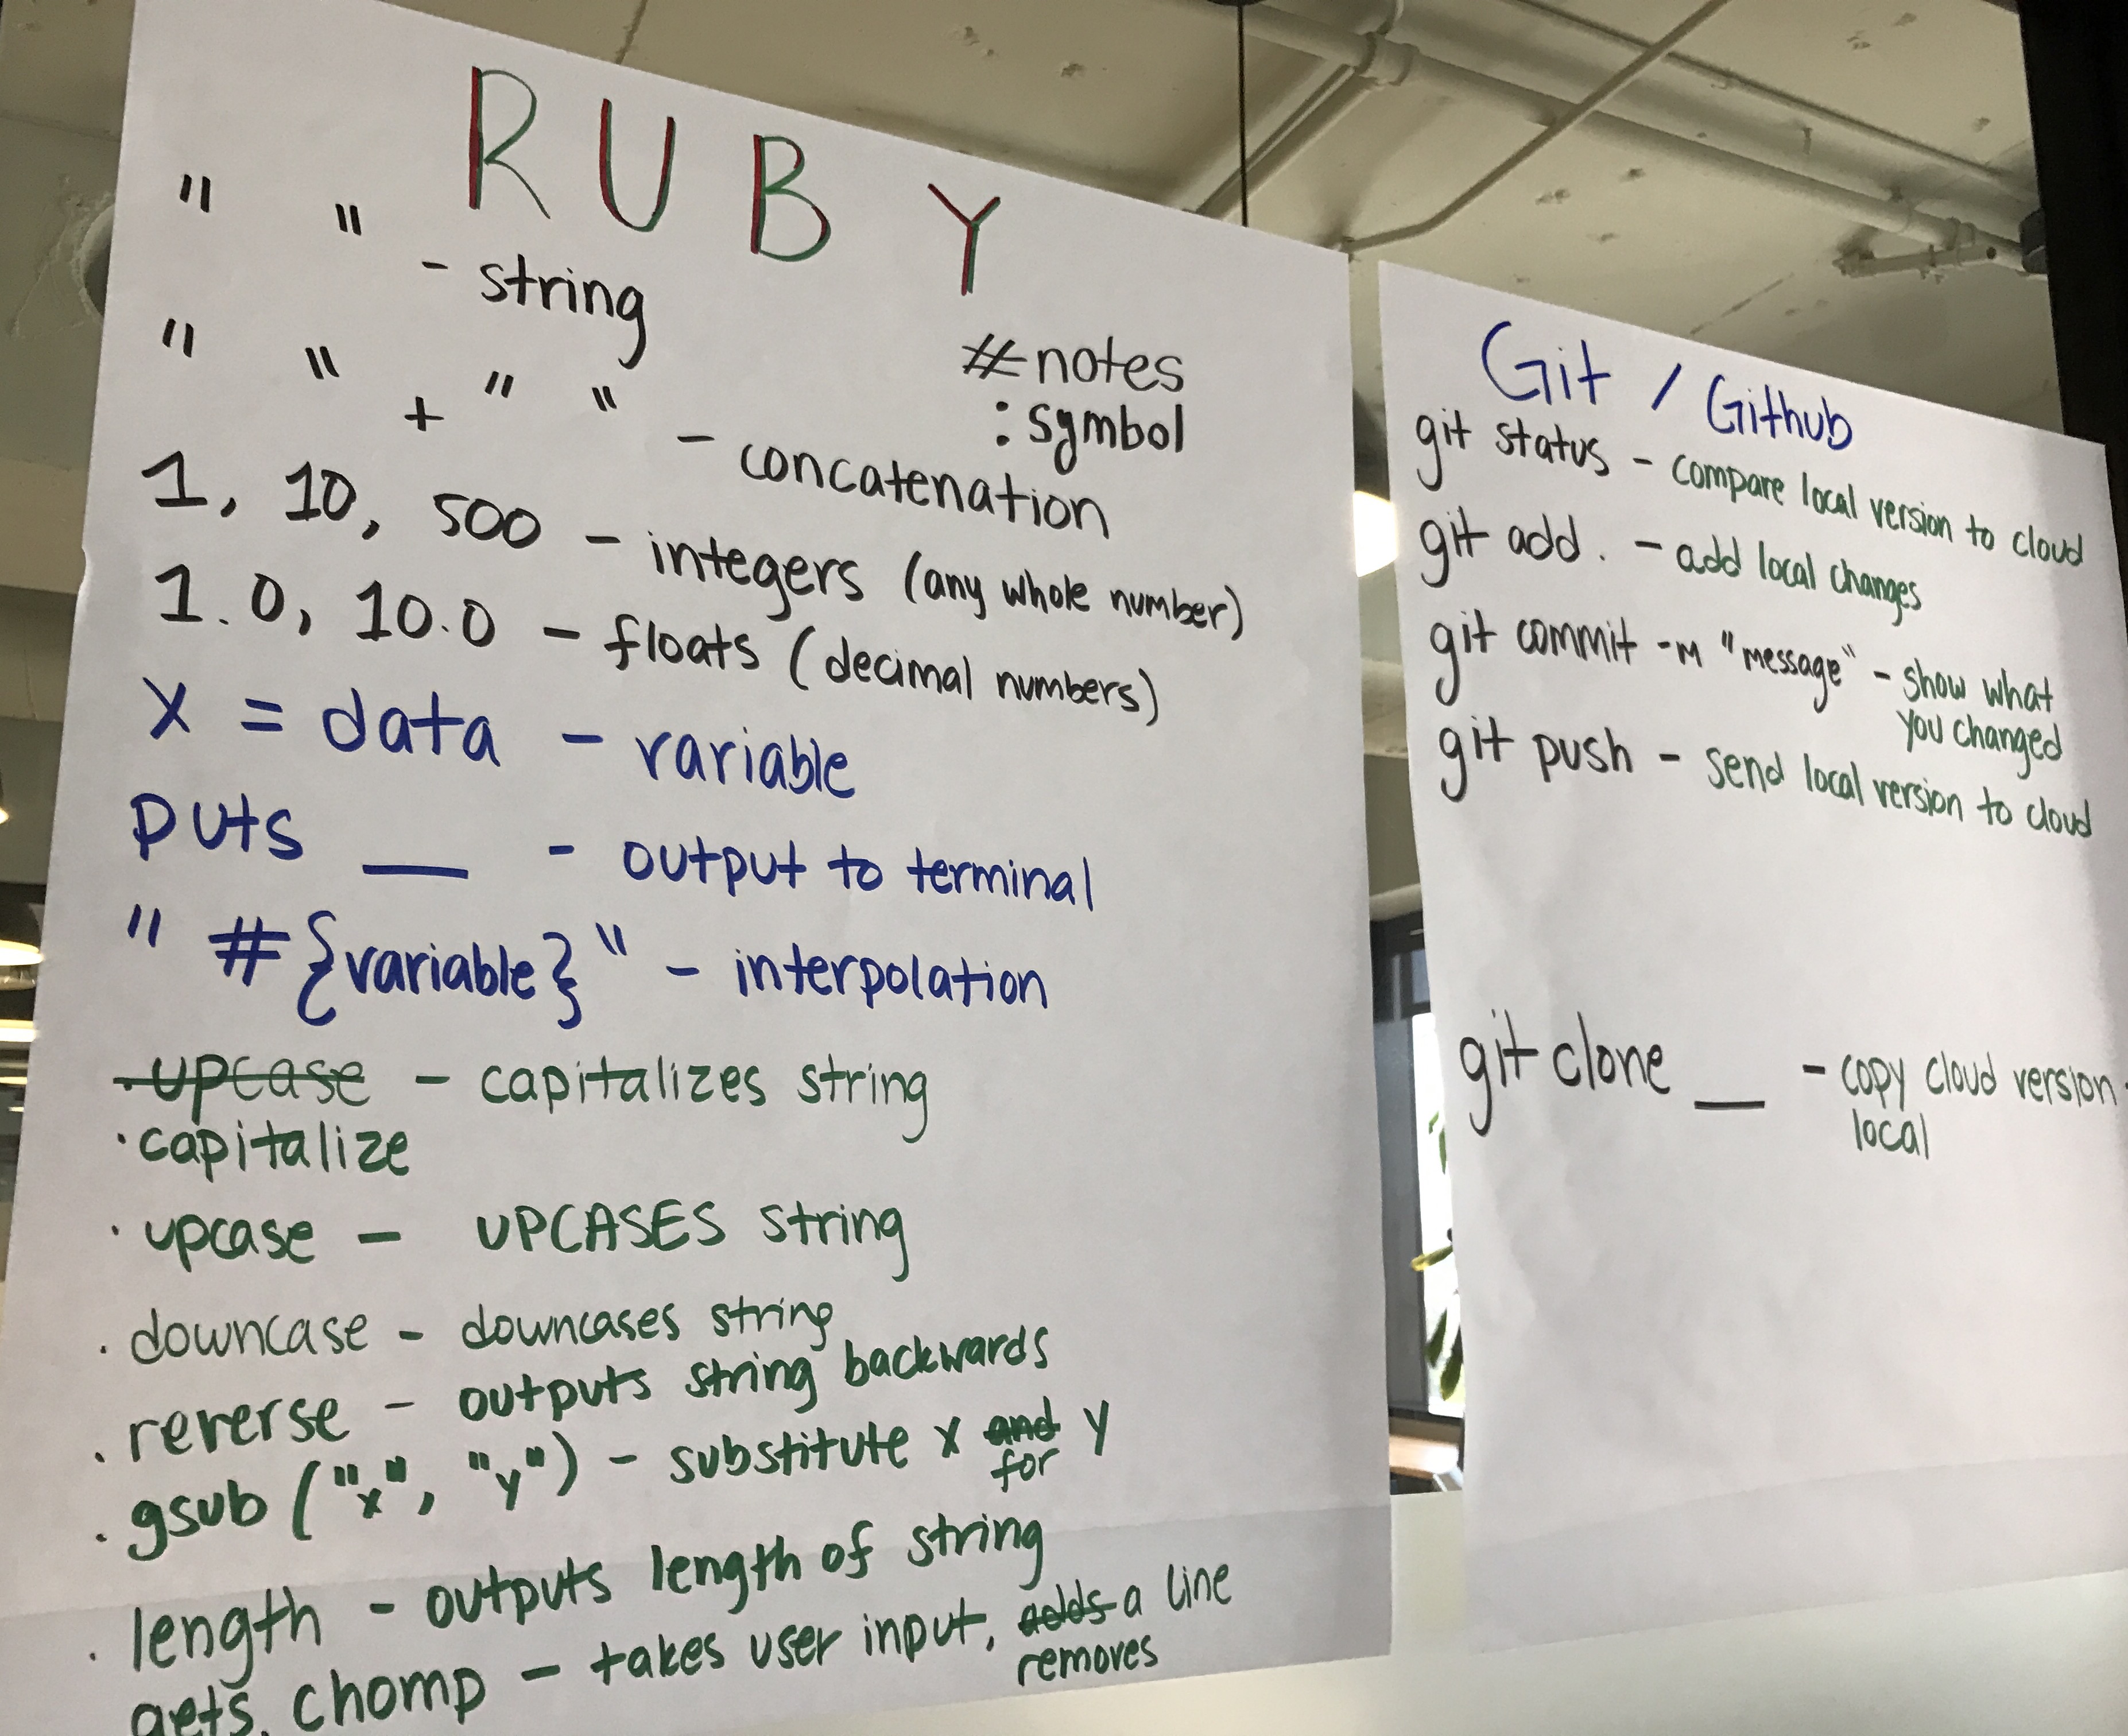 RUBY
" " - string
#notes
:symbol
" " + " " - concatenation
1, 10, 500 - integers (any whole number)
1.0, 10.0 - floats (decimal numbers)
x = data - variable
puts __ - output to terminal
" #{variable}" - interpolation
.upcase - capitalizes string
.capitalize
.upcase - UPCASES string
.downcase - downcases string
.reverse - outputs string backwards
.gsub ("x", "y") - substitute x and y
for
.length - outputs length of string
gets.chomp - takes user input, adds a line
removes
Git / Github
git status - compare local version to cloud
git add . - add local changes
git commit -m "message" - show what
you changed
git push - send local version to cloud
git clone __ - copy cloud version
local